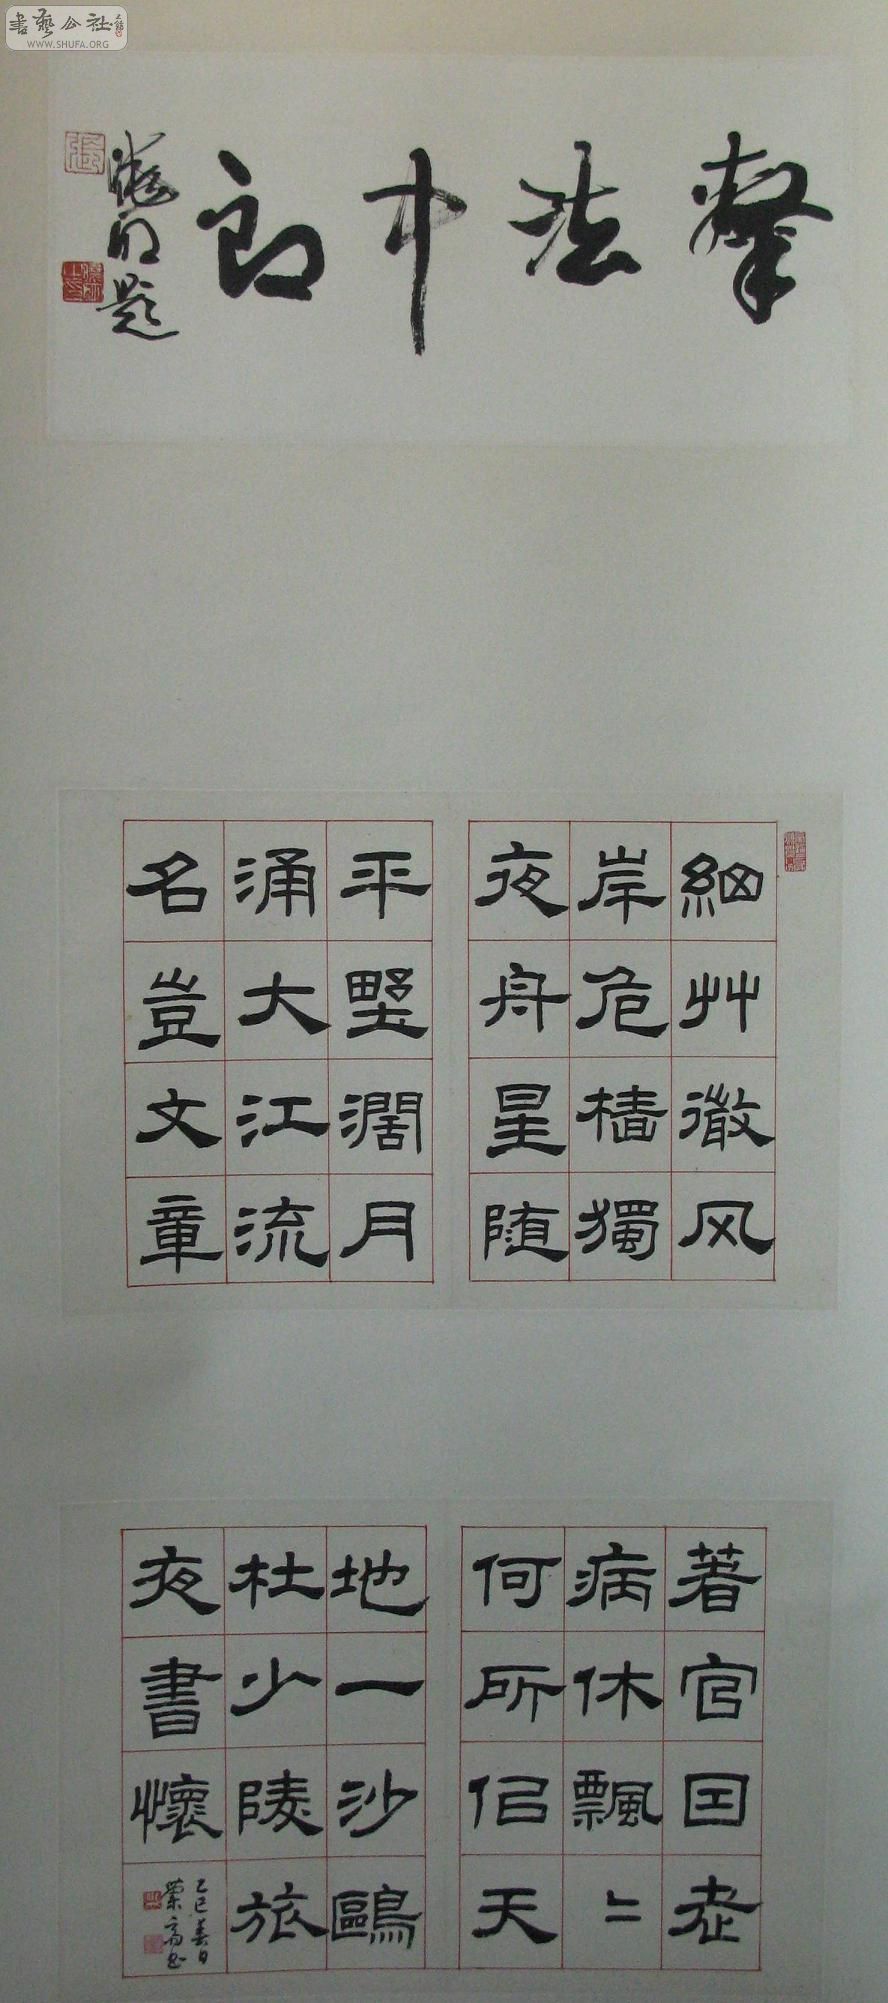 書藝公社
WWW.SHUFA.ORG
擎法中郎
題
細艸微风
岸危樯獨
夜舟星随
平墅濶月
涌大江流
名豈文章
著官因老
病休飄〻
何所佀天
地一沙鷗
杜少陵旅
夜書懷
乙巳春日